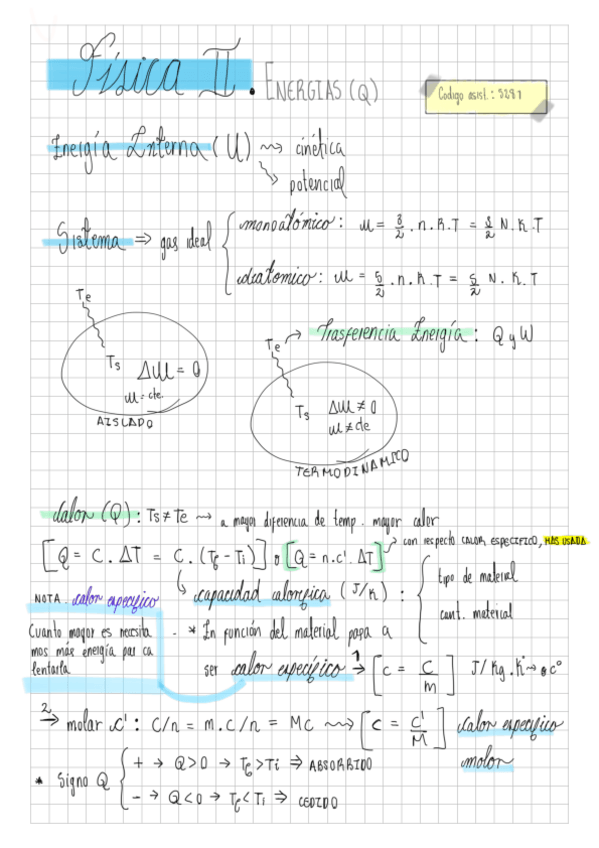 Física II. ENERGIAS (Q)
Codigo asist.: 5281
Energía Interna (U) ⇝ cinética
potencial
Sistema ⇒ gas ideal { monoatómico: U = 3/2 . n . R . T = 3/2 N . K . T
diatomico: U = 5/2 . n . R . T = 5/2 N . K . T
Te
Ts
ΔU = 0
U = cte.
AISLADO
Te → Trasferencia Energía: Q y W
Ts
ΔU ≠ 0
U ≠ cte
TERMODINAMICO
Calor (Q): Ts ≠ Te ⇝ a mayor diferencia de temp. mayor calor
[Q = C . ΔT = C . (Tf - Ti)] o [Q = n.c'. ΔT] → con respecto CALOR ESPECIFICO, MÁS USADA
NOTA. calor especifico
Cuanto mayor es necesita
mos más energía par ca
lentarla
↳ capacidad calorifica (J/K): { tipo de material
cant. material
* En función del material papa a
ser calor especifico 1→ [c = C/m] J/Kg.K → o C°
2⇒ molar C': C/n = m.c/n = Mc ⇝ [c = C'/M] calor especifico
molar
* Signo Q { + → Q>0 → Tf>Ti ⇒ ABSORBIDO
- → Q<0 → Tf<Ti ⇒ CEDIDO